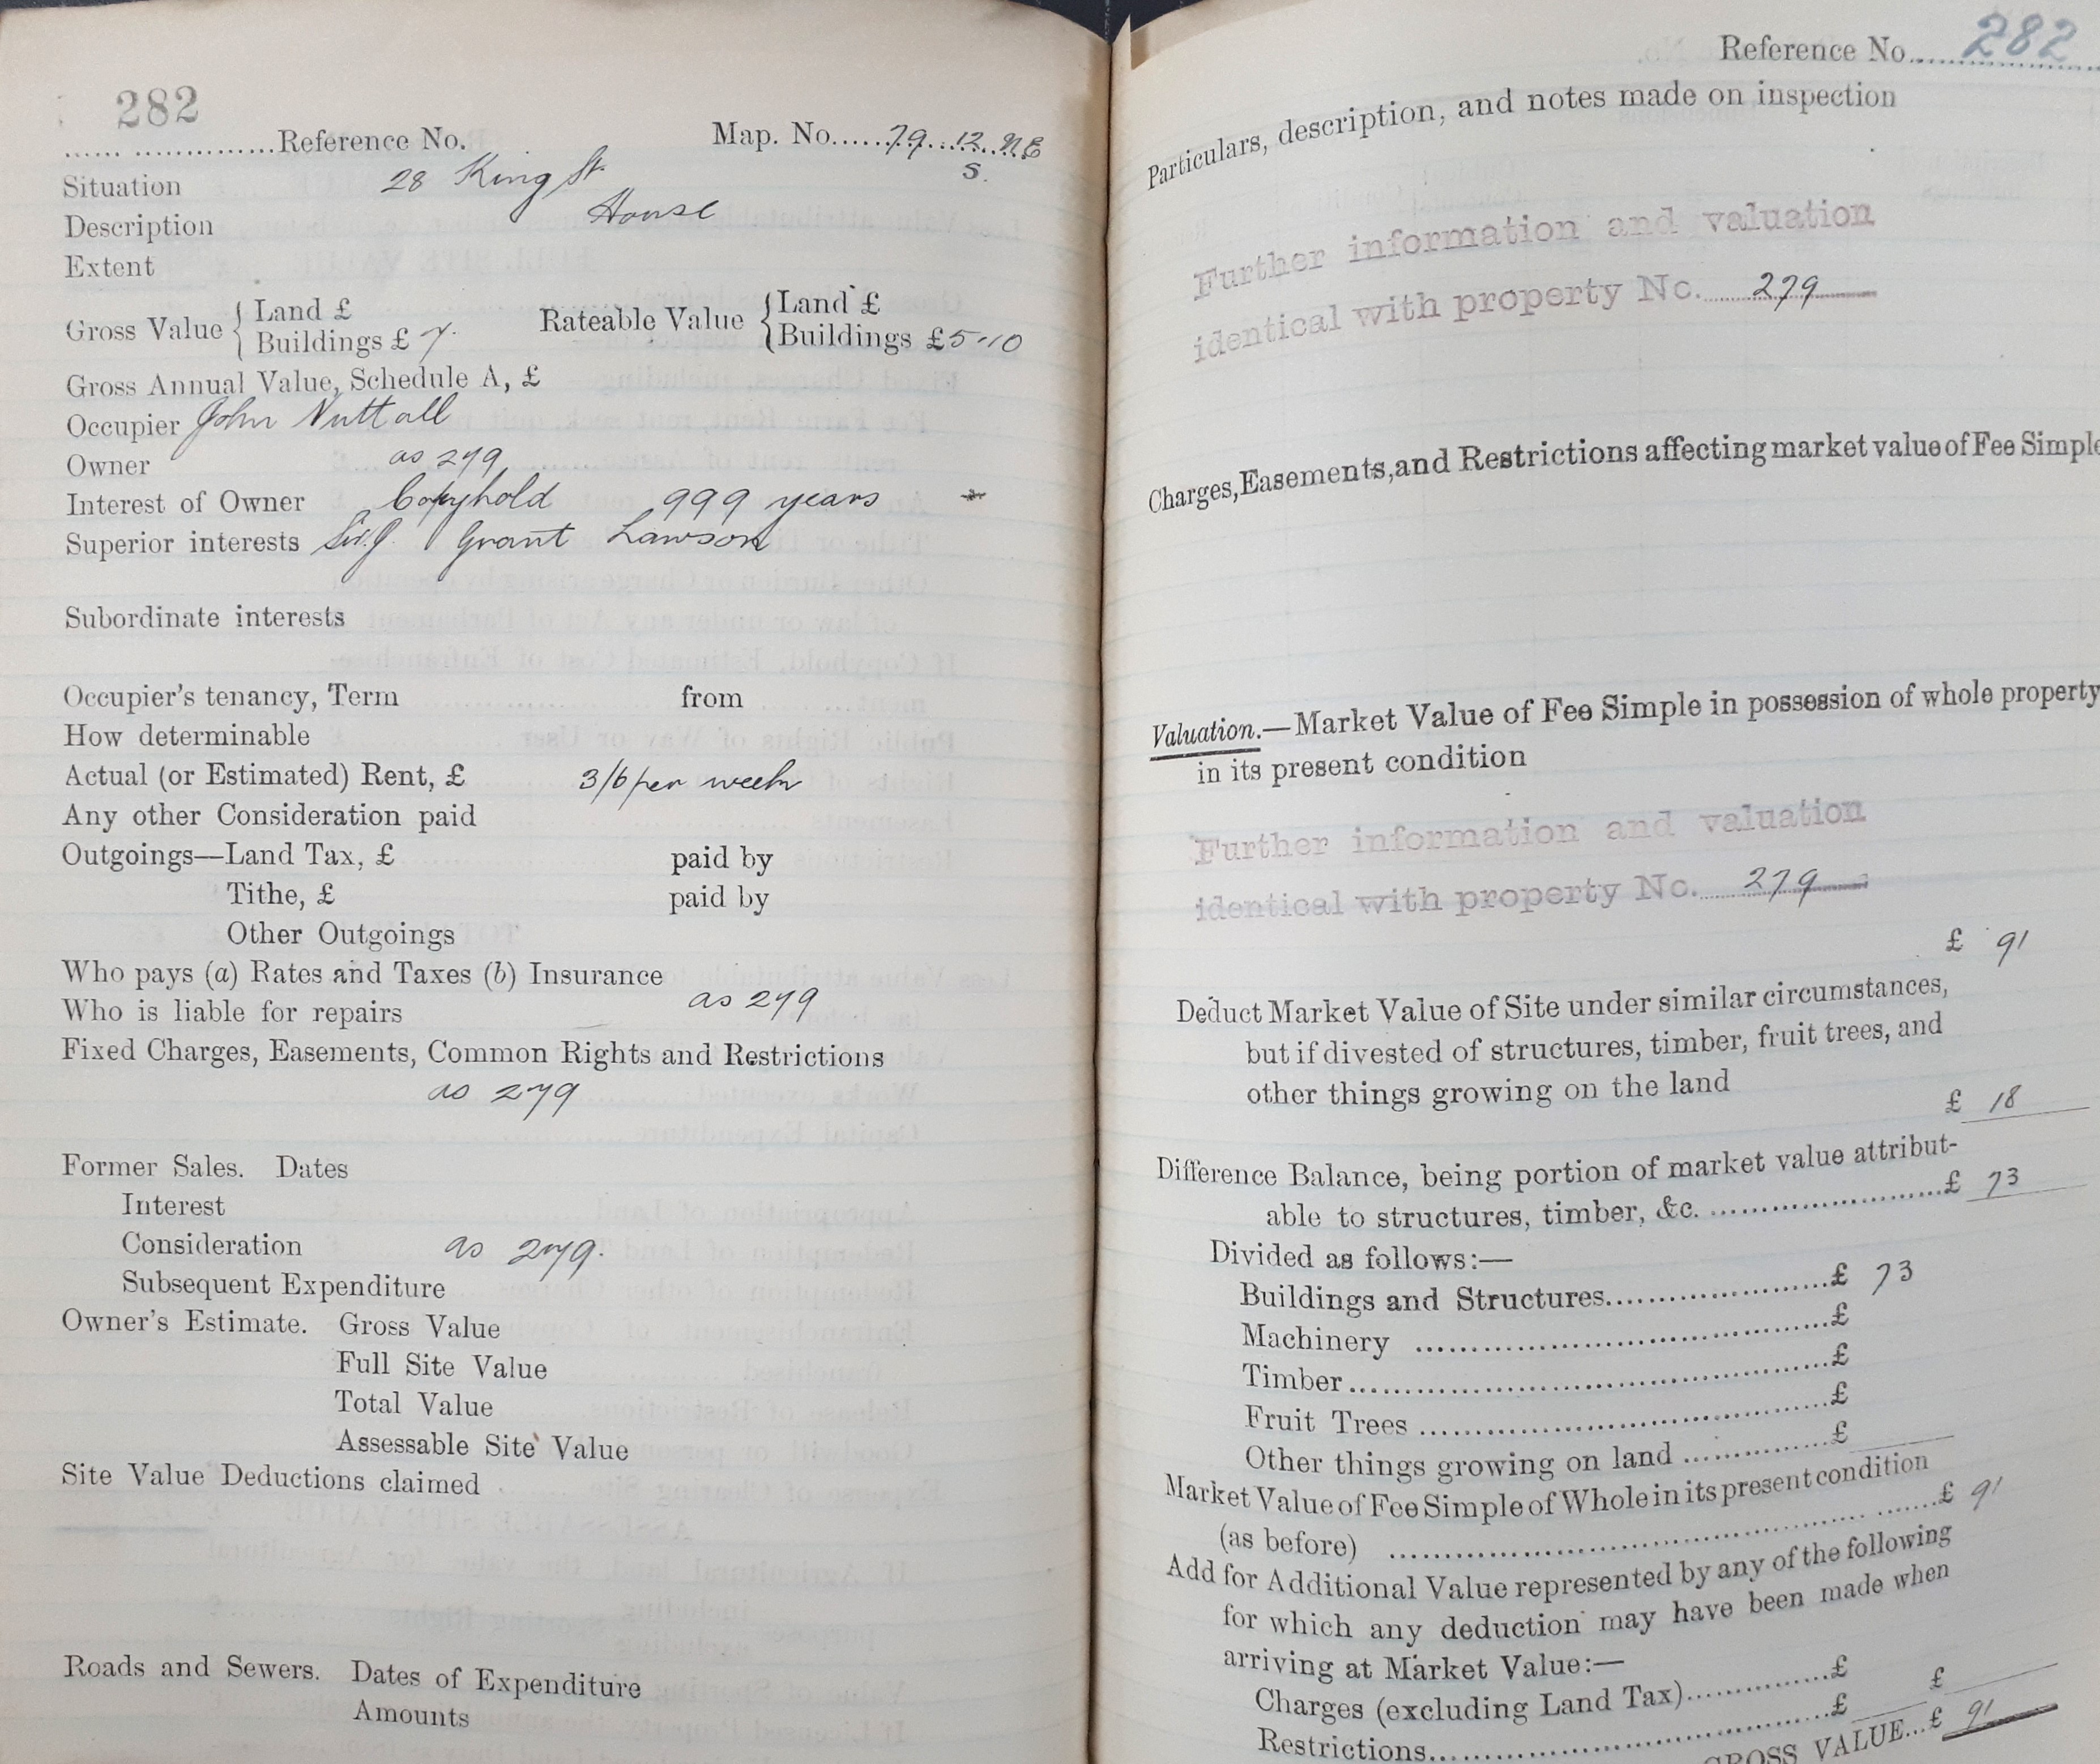 282
...... ...............Reference No. Map. No.....79...12...NE
S.
Situation 28 King St.
Description House
Extent
Gross Value { Land £
Buildings £ 7.
Rateable Value { Land £
Buildings £5-10
Gross Annual Value, Schedule A, £
Occupier John Nuttall
Owner as 279
Interest of Owner Copyhold 999 years
Superior interests Sir J. Grant Lawson
Subordinate interests
Occupier's tenancy, Term from
How determinable
Actual (or Estimated) Rent, £ 3/6 per week
Any other Consideration paid
Outgoings—Land Tax, £ paid by
Tithe, £ paid by
Other Outgoings
Who pays (a) Rates and Taxes (b) Insurance
Who is liable for repairs as 279
Fixed Charges, Easements, Common Rights and Restrictions
as 279
Former Sales. Dates
Interest
Consideration as 279.
Subsequent Expenditure
Owner's Estimate. Gross Value
Full Site Value
Total Value
Assessable Site Value
Site Value Deductions claimed
Roads and Sewers. Dates of Expenditure
Amounts
Reference No. 282
Particulars, description, and notes made on inspection
Further information and valuation
identical with property No. 279
Charges, Easements, and Restrictions affecting market value of Fee Simple
Valuation.—Market Value of Fee Simple in possession of whole property
in its present condition
Further information and valuation
identical with property No. 279
£ 91
Deduct Market Value of Site under similar circumstances,
but if divested of structures, timber, fruit trees, and
other things growing on the land
£ 18
Difference Balance, being portion of market value attribut-
able to structures, timber, &c. ........................£ 73
Divided as follows:—
Buildings and Structures........................£ 73
Machinery ........................£
Timber........................£
Fruit Trees ........................£
Other things growing on land ...............£
Market Value of Fee Simple of Whole in its present condition
(as before) ........................£ 91
Add for Additional Value represented by any of the following
for which any deduction may have been made when
arriving at Market Value:—
Charges (excluding Land Tax)...............£
Restrictions........................£ £
GROSS VALUE...£ 91